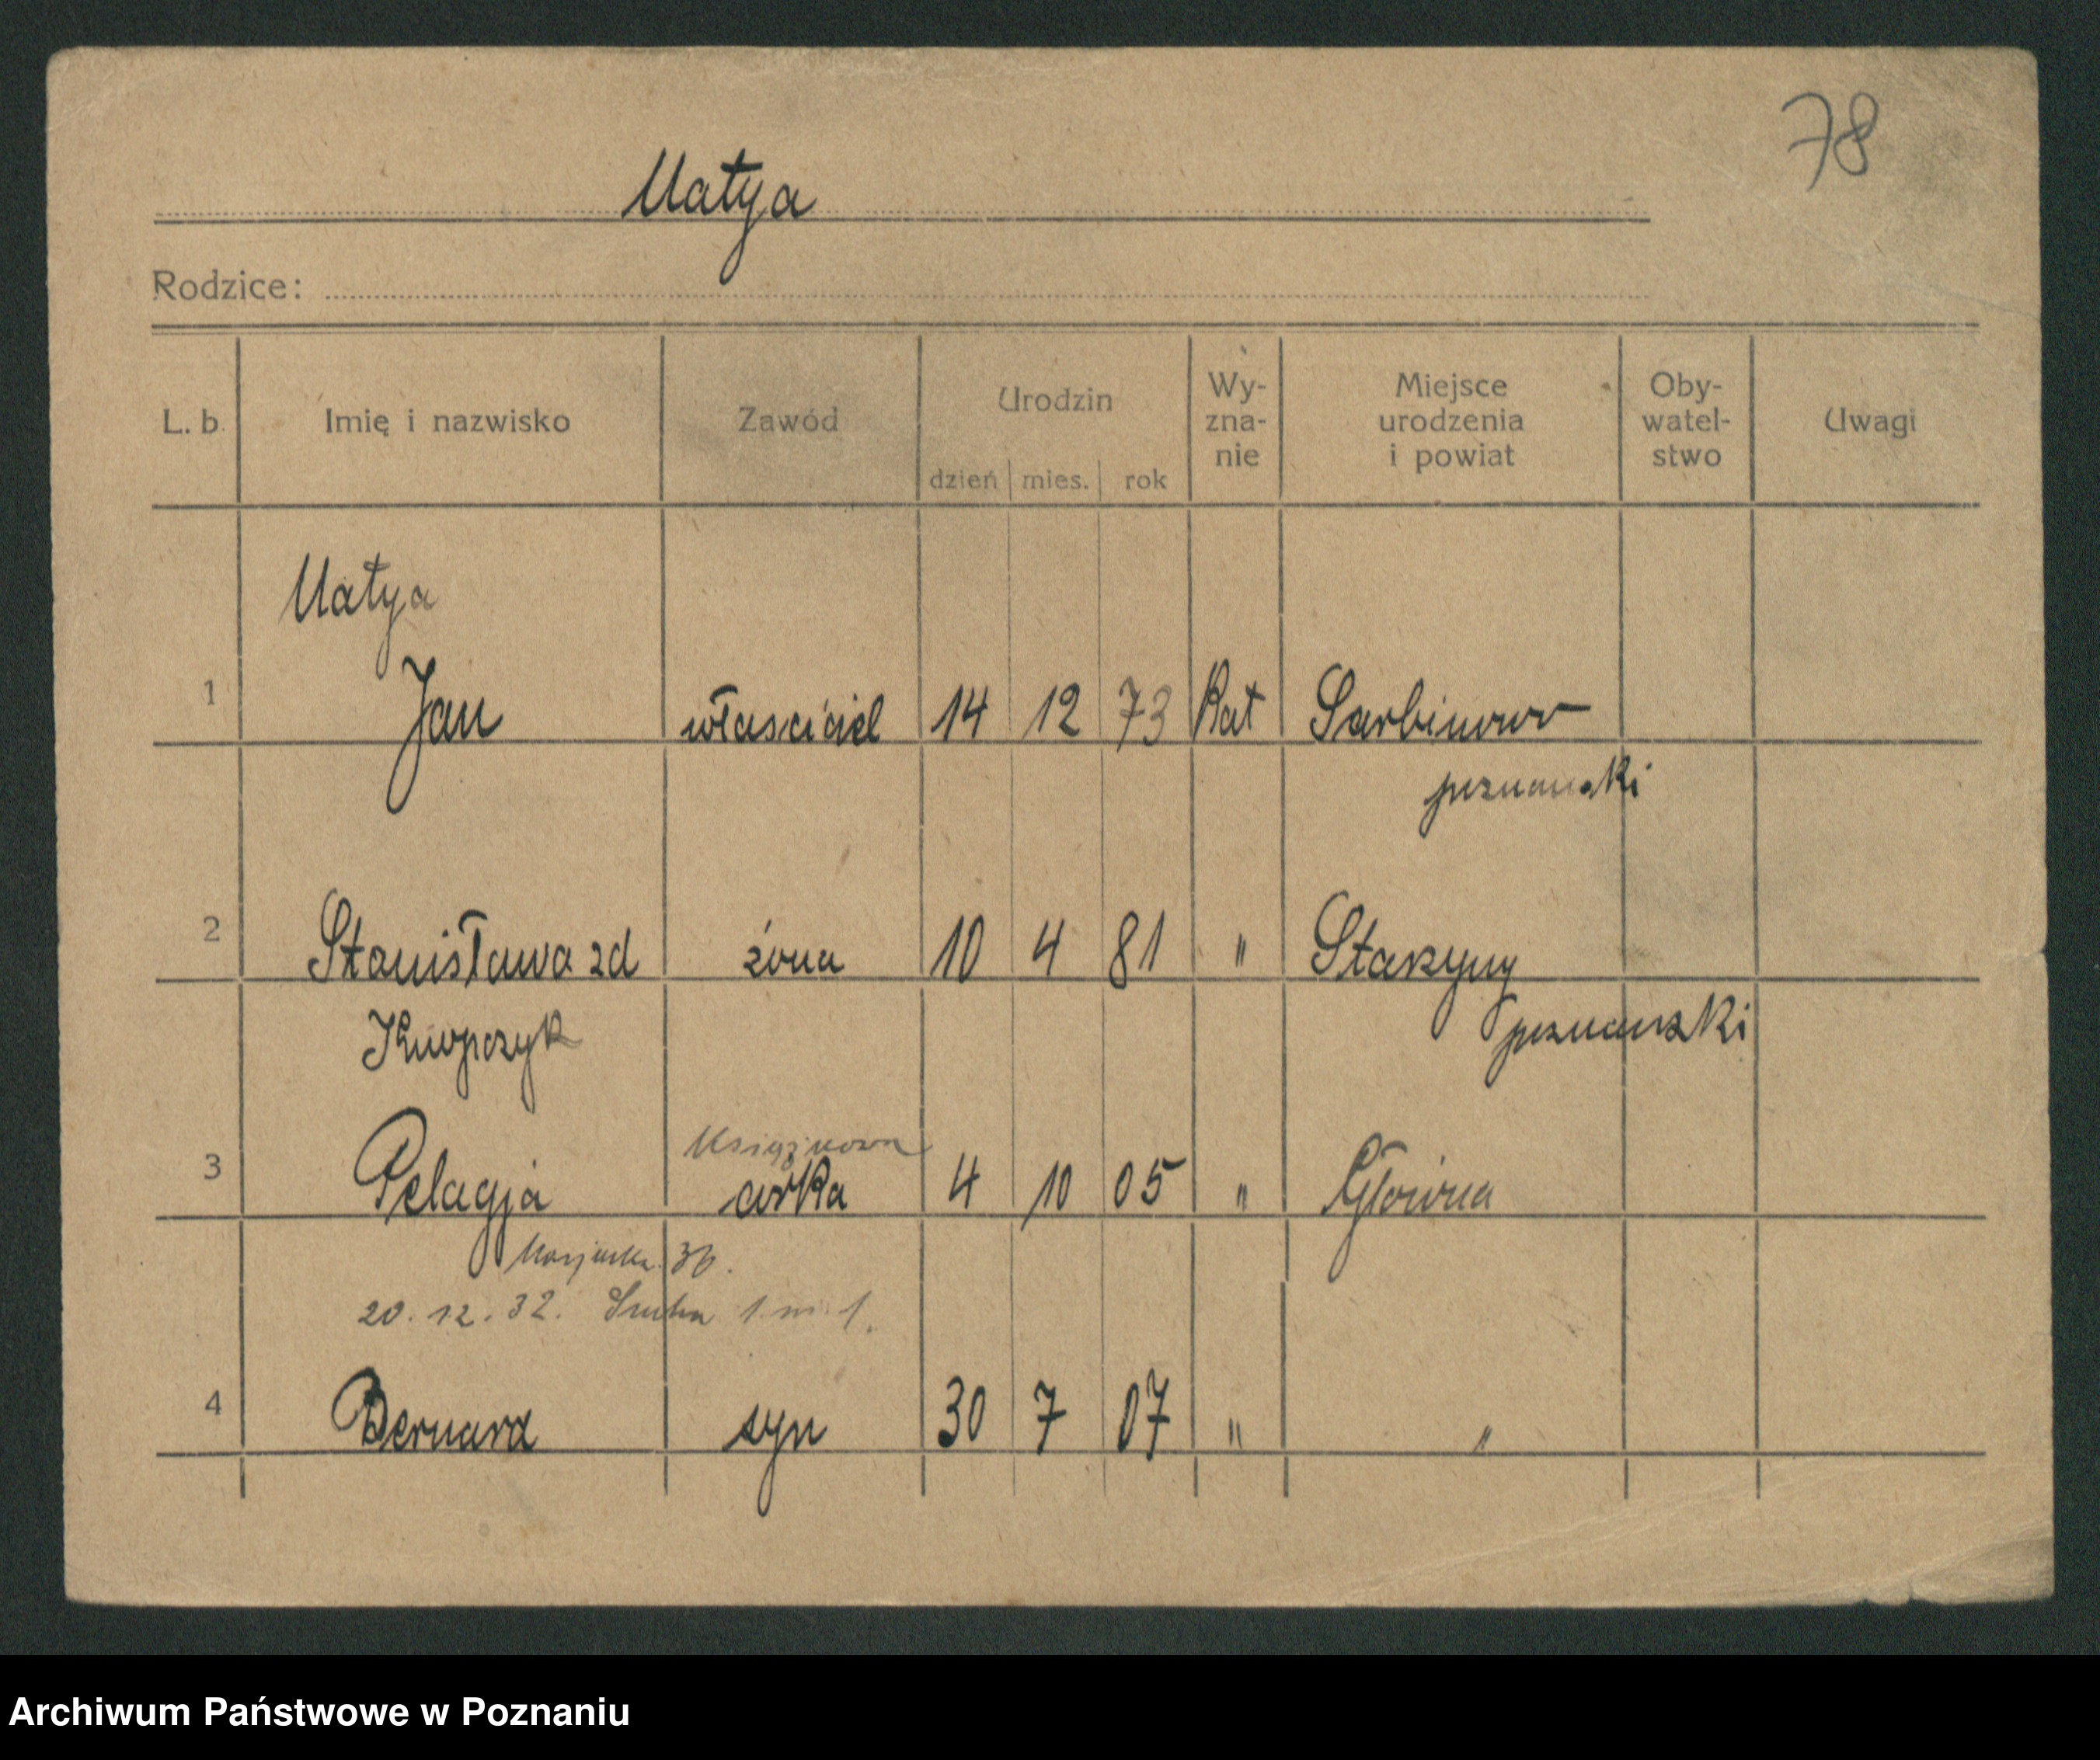 78
Matya
Rodzice:
L. b. Imię i nazwisko Zawód Urodzin dzień mies. rok Wy-zna-nie Miejsce urodzenia i powiat Oby-watel-stwo Uwagi
Matya
1 Jan właściciel 14 12 73 Kat Sarbinowo
poznański
2 Stanisława zd żona 10 4 81 "
poznański
3 Pelagja córka 4 10 05 " Główna
36.
20.12.32. 1 m 1.
4 Bernard syn 30 7 07 " "
Archiwum Państwowe w Poznaniu